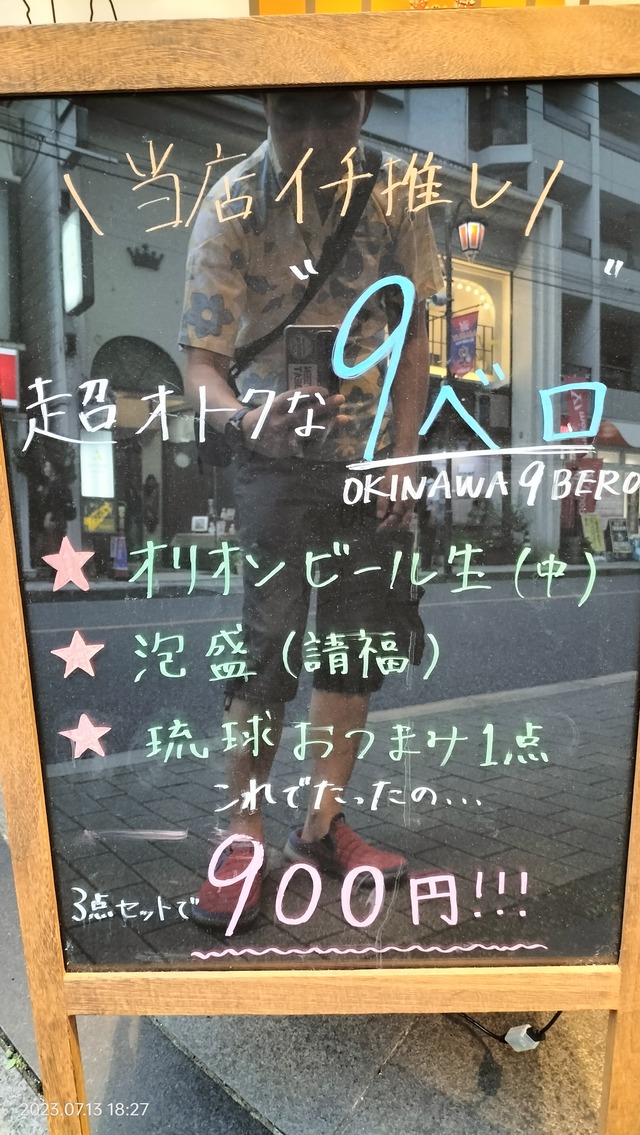 \ 当店イチ推し /
超オトクな "9ベロ"
OKINAWA 9 BERO
★ オリオンビール生(中)
★ 泡盛(請福)
★ 琉球おつまみ1点
これでたったの...
3点セットで 900円!!!
2023.07.13 18:27